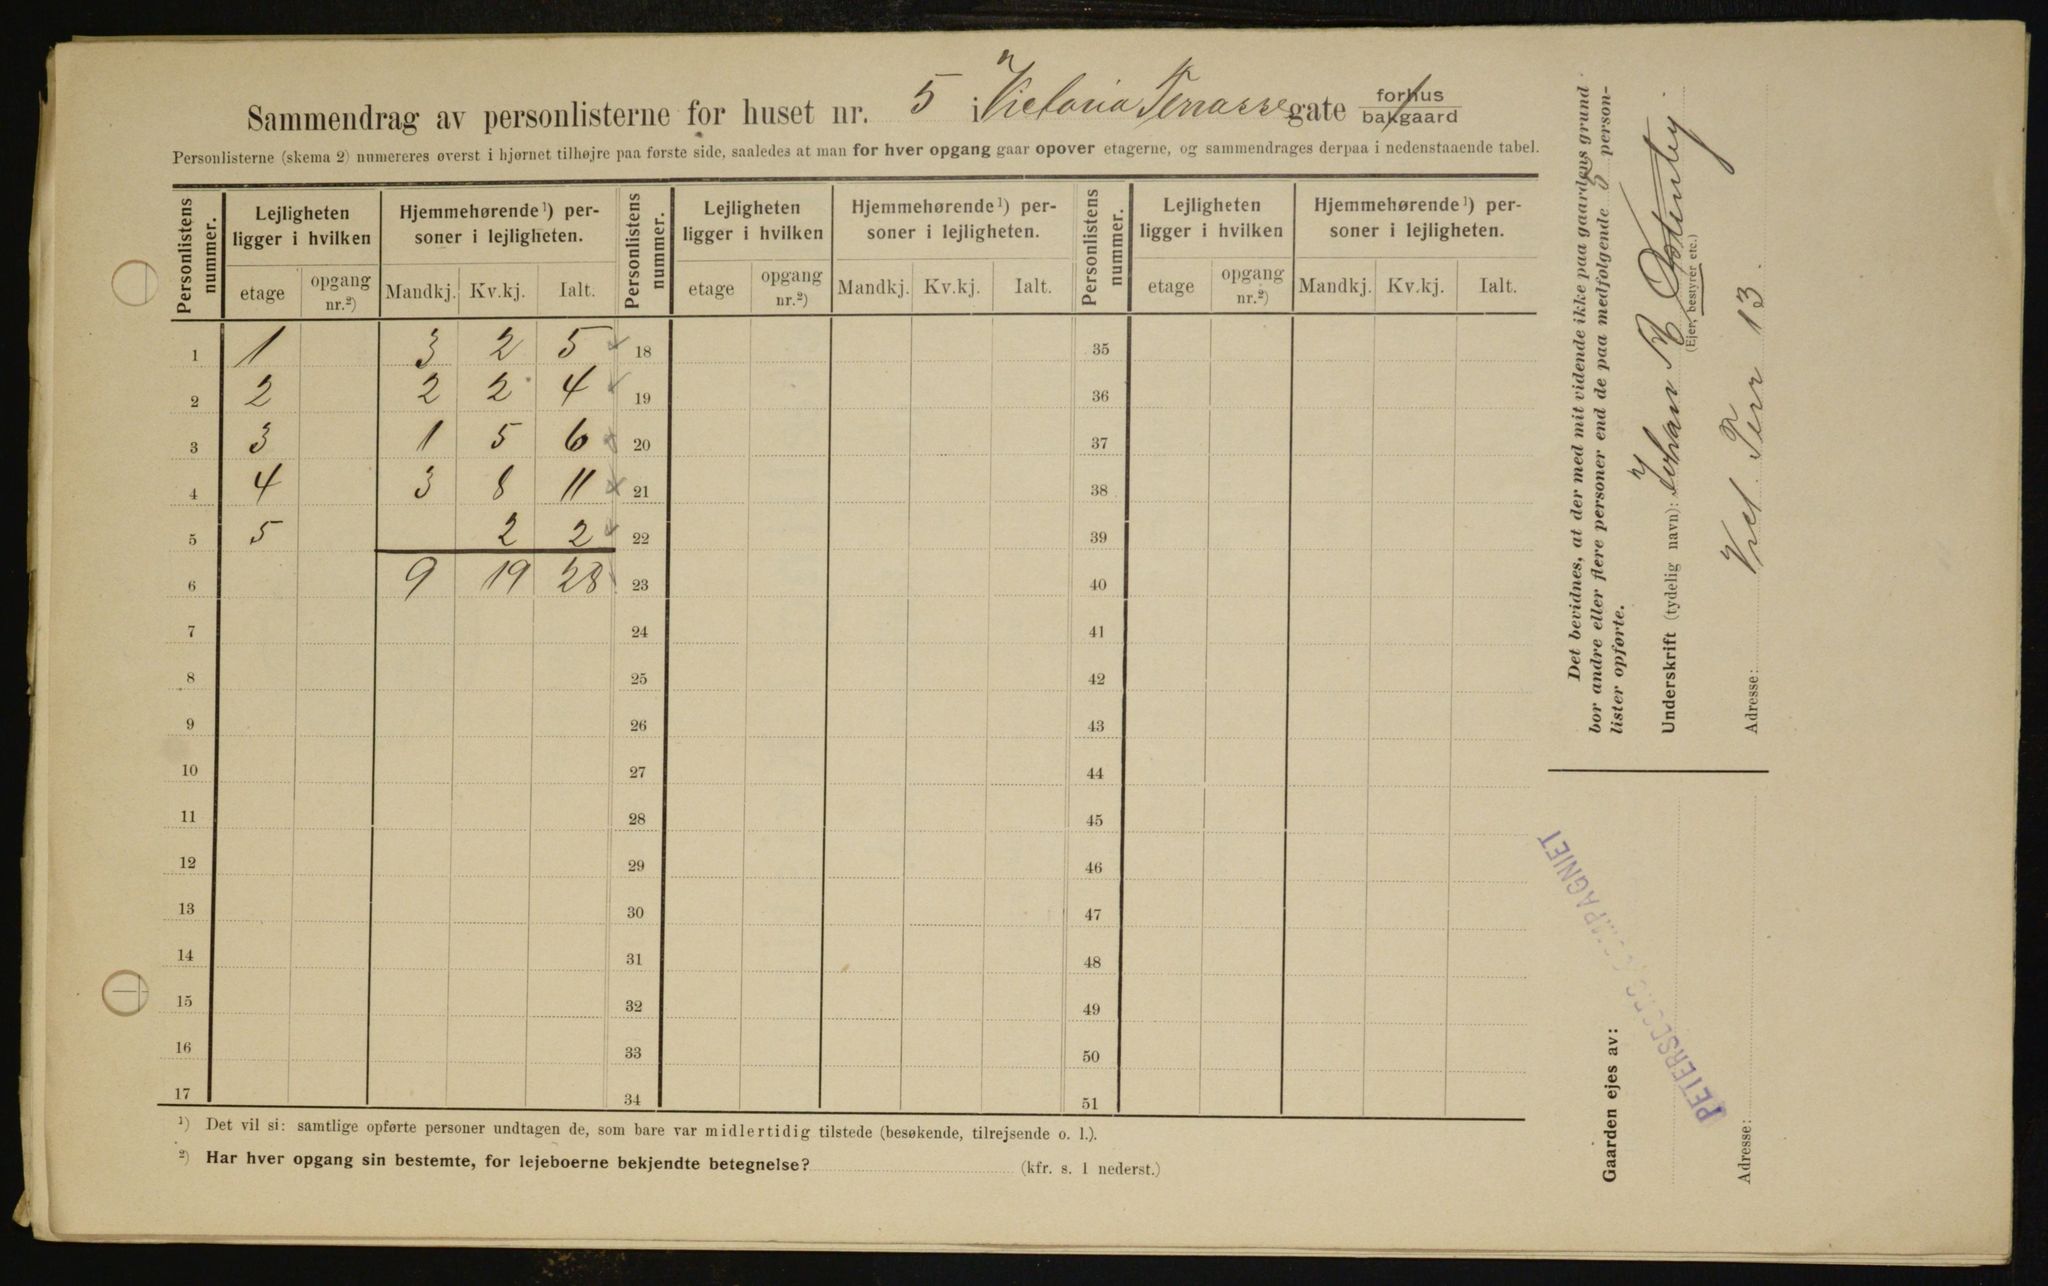 Sammendrag av personlisterne for huset nr. 5 i Victoria Terrasse gate forhus bakgaard
Personlisterne (skema 2) numereres øverst i hjørnet tilhøjre paa første side, saaledes at man for hver opgang gaar opover etagerne, og sammendrages derpaa i nedenstaaende tabel.
Personlistens nummer. Lejligheten ligger i hvilken Hjemmehørende ¹) personer i lejligheten. Personlistens nummer. Lejligheten ligger i hvilken Hjemmehørende ¹) personer i lejligheten. Personlistens nummer. Lejligheten ligger i hvilken Hjemmehørende ¹) personer i lejligheten.
etage opgang nr.²) Mandkj. Kv.kj. Ialt. etage opgang nr.²) Mandkj. Kv.kj. Ialt. etage opgang nr.²) Mandkj. Kv.kj. Ialt.
1 1 3 2 5 18 35
2 2 2 2 4 19 36
3 3 1 5 6 20 37
4 4 3 8 11 21 38
5 5 2 2 22 39
6 9 19 28 23 40
7 24 41
8 25 42
9 26 43
10 27 44
11 28 45
12 29 46
13 30 47
14 31 48
15 32 49
16 33 50
17 34 51
¹) Det vil si: samtlige opførte personer undtagen de, som bare var midlertidig tilstede (besøkende, tilrejsende o. l.).
²) Har hver opgang sin bestemte, for lejeboerne bekjendte betegnelse? (kfr. s. 1 nederst.)
Det bevidnes, at der med mit vidende ikke paa gaardens grund
bor andre eller flere personer end de paa medfølgende 5 person-
lister opførte.
Underskrift (tydelig navn): Johan
(Ejer, bestyrer etc.)
Adresse: Vict Terr 13.
Gaarden ejes av:
Adresse: